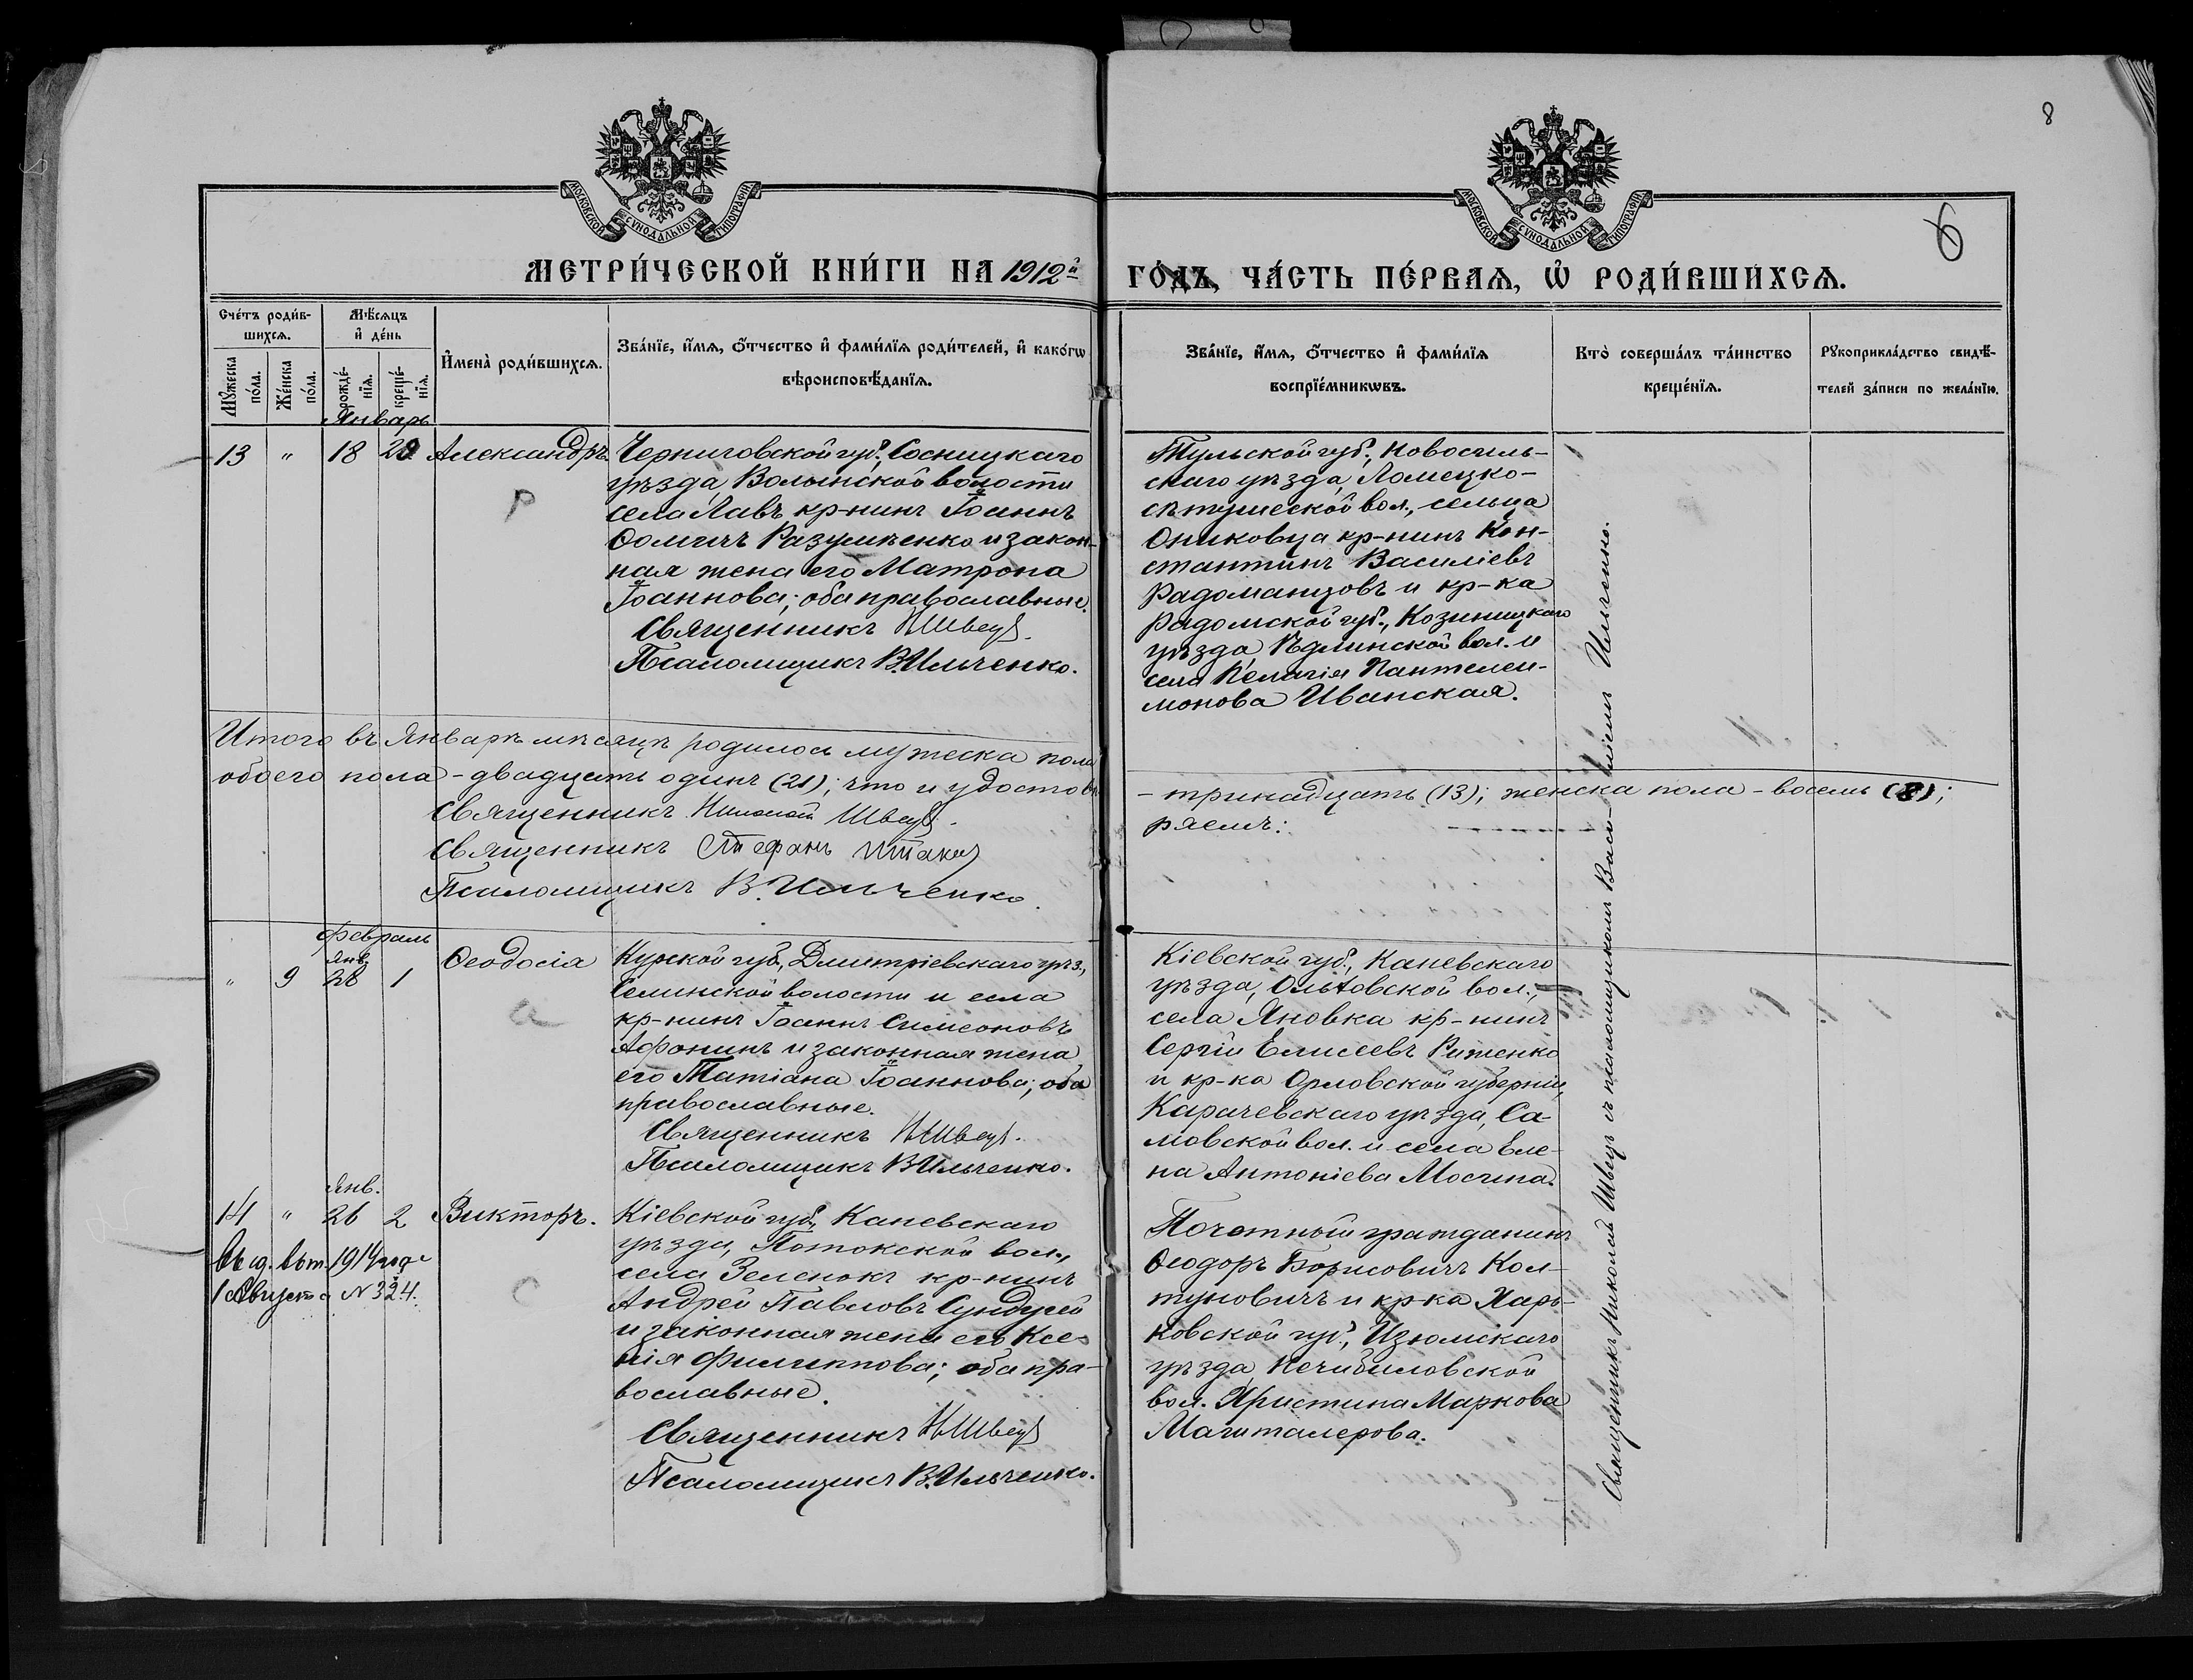 8
6
МОСКОВСКОЙ СѴНОДАЛЬНОЙ ТИПОГРАФІИ
МОСКОВСКОЙ СѴНОДАЛЬНОЙ ТИПОГРАФІИ
МЕТРИ́ЧЕСКОЙ КНИ́ГИ НА 1912й
ГО́ДЪ, ЧА́СТЬ ПЕ́РВАѦ, Ѡ҆ РОДИ́ВШИХСѦ.
Сче́тъ роди́в-
шихсѧ.
Мꙋ́жеска по́ла.
Же́нска по́ла.
Мѣ́сѧцъ
и҆ де́нь
рожде́-
нїѧ.
креще́-
нїѧ.
И҆мена̀ роди́вшихсѧ.
Зва́нїе, и҆́мѧ, ѻ҆́тчество и҆ фами́лїѧ роди́телей, и҆ како́гѡ
вѣроисповѣ́данїѧ.
Зва́нїе, и҆́мѧ, ѻ҆́тчество и҆ фами́лїѧ
воспрїе́мникѡвъ.
Кто̀ соверша́лъ та́инство
креще́нїѧ.
Рꙋкоприкла́дство свидѣ́-
телей за́писи по жела́нїю.
Январь
13 " 18 20 Александръ.
Черниговской губ., Сосницкаго
уѣзда Волынской волости
села Лавъ кр-нинъ Іоаннъ
Ѳомичъ Разумѣенко и закон-
ная жена его Матрона
Іоаннова; оба православные.
Священникъ НШвецъ.
Псаломщикъ В.Ильченко.
Р
Тульской губ., Новосиль-
скаго уѣзда, Ломецко-
сельца
Ониковца кр-нинъ Кон-
стантинъ Василіевъ
Радоманцовъ и кр-ка
Радомской губ., Козиницкаго
уѣзда Едлинской вол. и
села Пелагія Пантелеи-
монова Иванская.
Итого въ Январѣ мѣсяцѣ родилось мужеска пола
- тринадцать (13); женска пола - восемь (8);
обоего пола - двадцать одинъ (21); что и удостовѣ-
ряемъ:
Священникъ Николай Швецъ.
Священникъ Стефанъ
Псаломщикъ В. Ильченко.
Февраль
Янв.
" 9 28 1 Ѳеодосія
а
Курской губ., Дмитріевскаго уѣз.,
Селинской волости и села
кр-нинъ Іоаннъ Симеоновъ
Афонинъ и законная жена
его Татіана Іоаннова; оба
православные.
Священникъ НШвецъ.
Псаломщикъ ВИльченко.
Кіевской губ., Каневскаго
уѣзда, вол.,
села Яновка кр-нинъ
Сергій Елисеевъ Риженко
и кр-ка Орловской губерніи,
Карачевскаго уѣзда, Са-
мовской вол. и села Еле-
на Антоніева Мосина.
Янв.
14 " 26 2 Викторъ.
Выд. вып. 1914 года
1 Августа №324.
с
Кіевской губ., Каневскаго
уѣзда, Потокской вол.,
села Зеленокъ кр-нинъ
Андрей Павловъ Сундусей
и законная жена его Ксе-
нія Филиппова; оба пра-
вославные.
Священникъ НШвецъ
Псаломщикъ В.Ильченко.
Почетный гражданинъ
Ѳеодоръ Борисовичъ Кол-
туновичъ и кр-ка Харь-
ковской губ., Изюмскаго
уѣзда
вол. Христина Маркова
Магиталерова.
Священникъ Николай Швецъ съ псаломщикомъ Васи-ліемъ Ильченко.